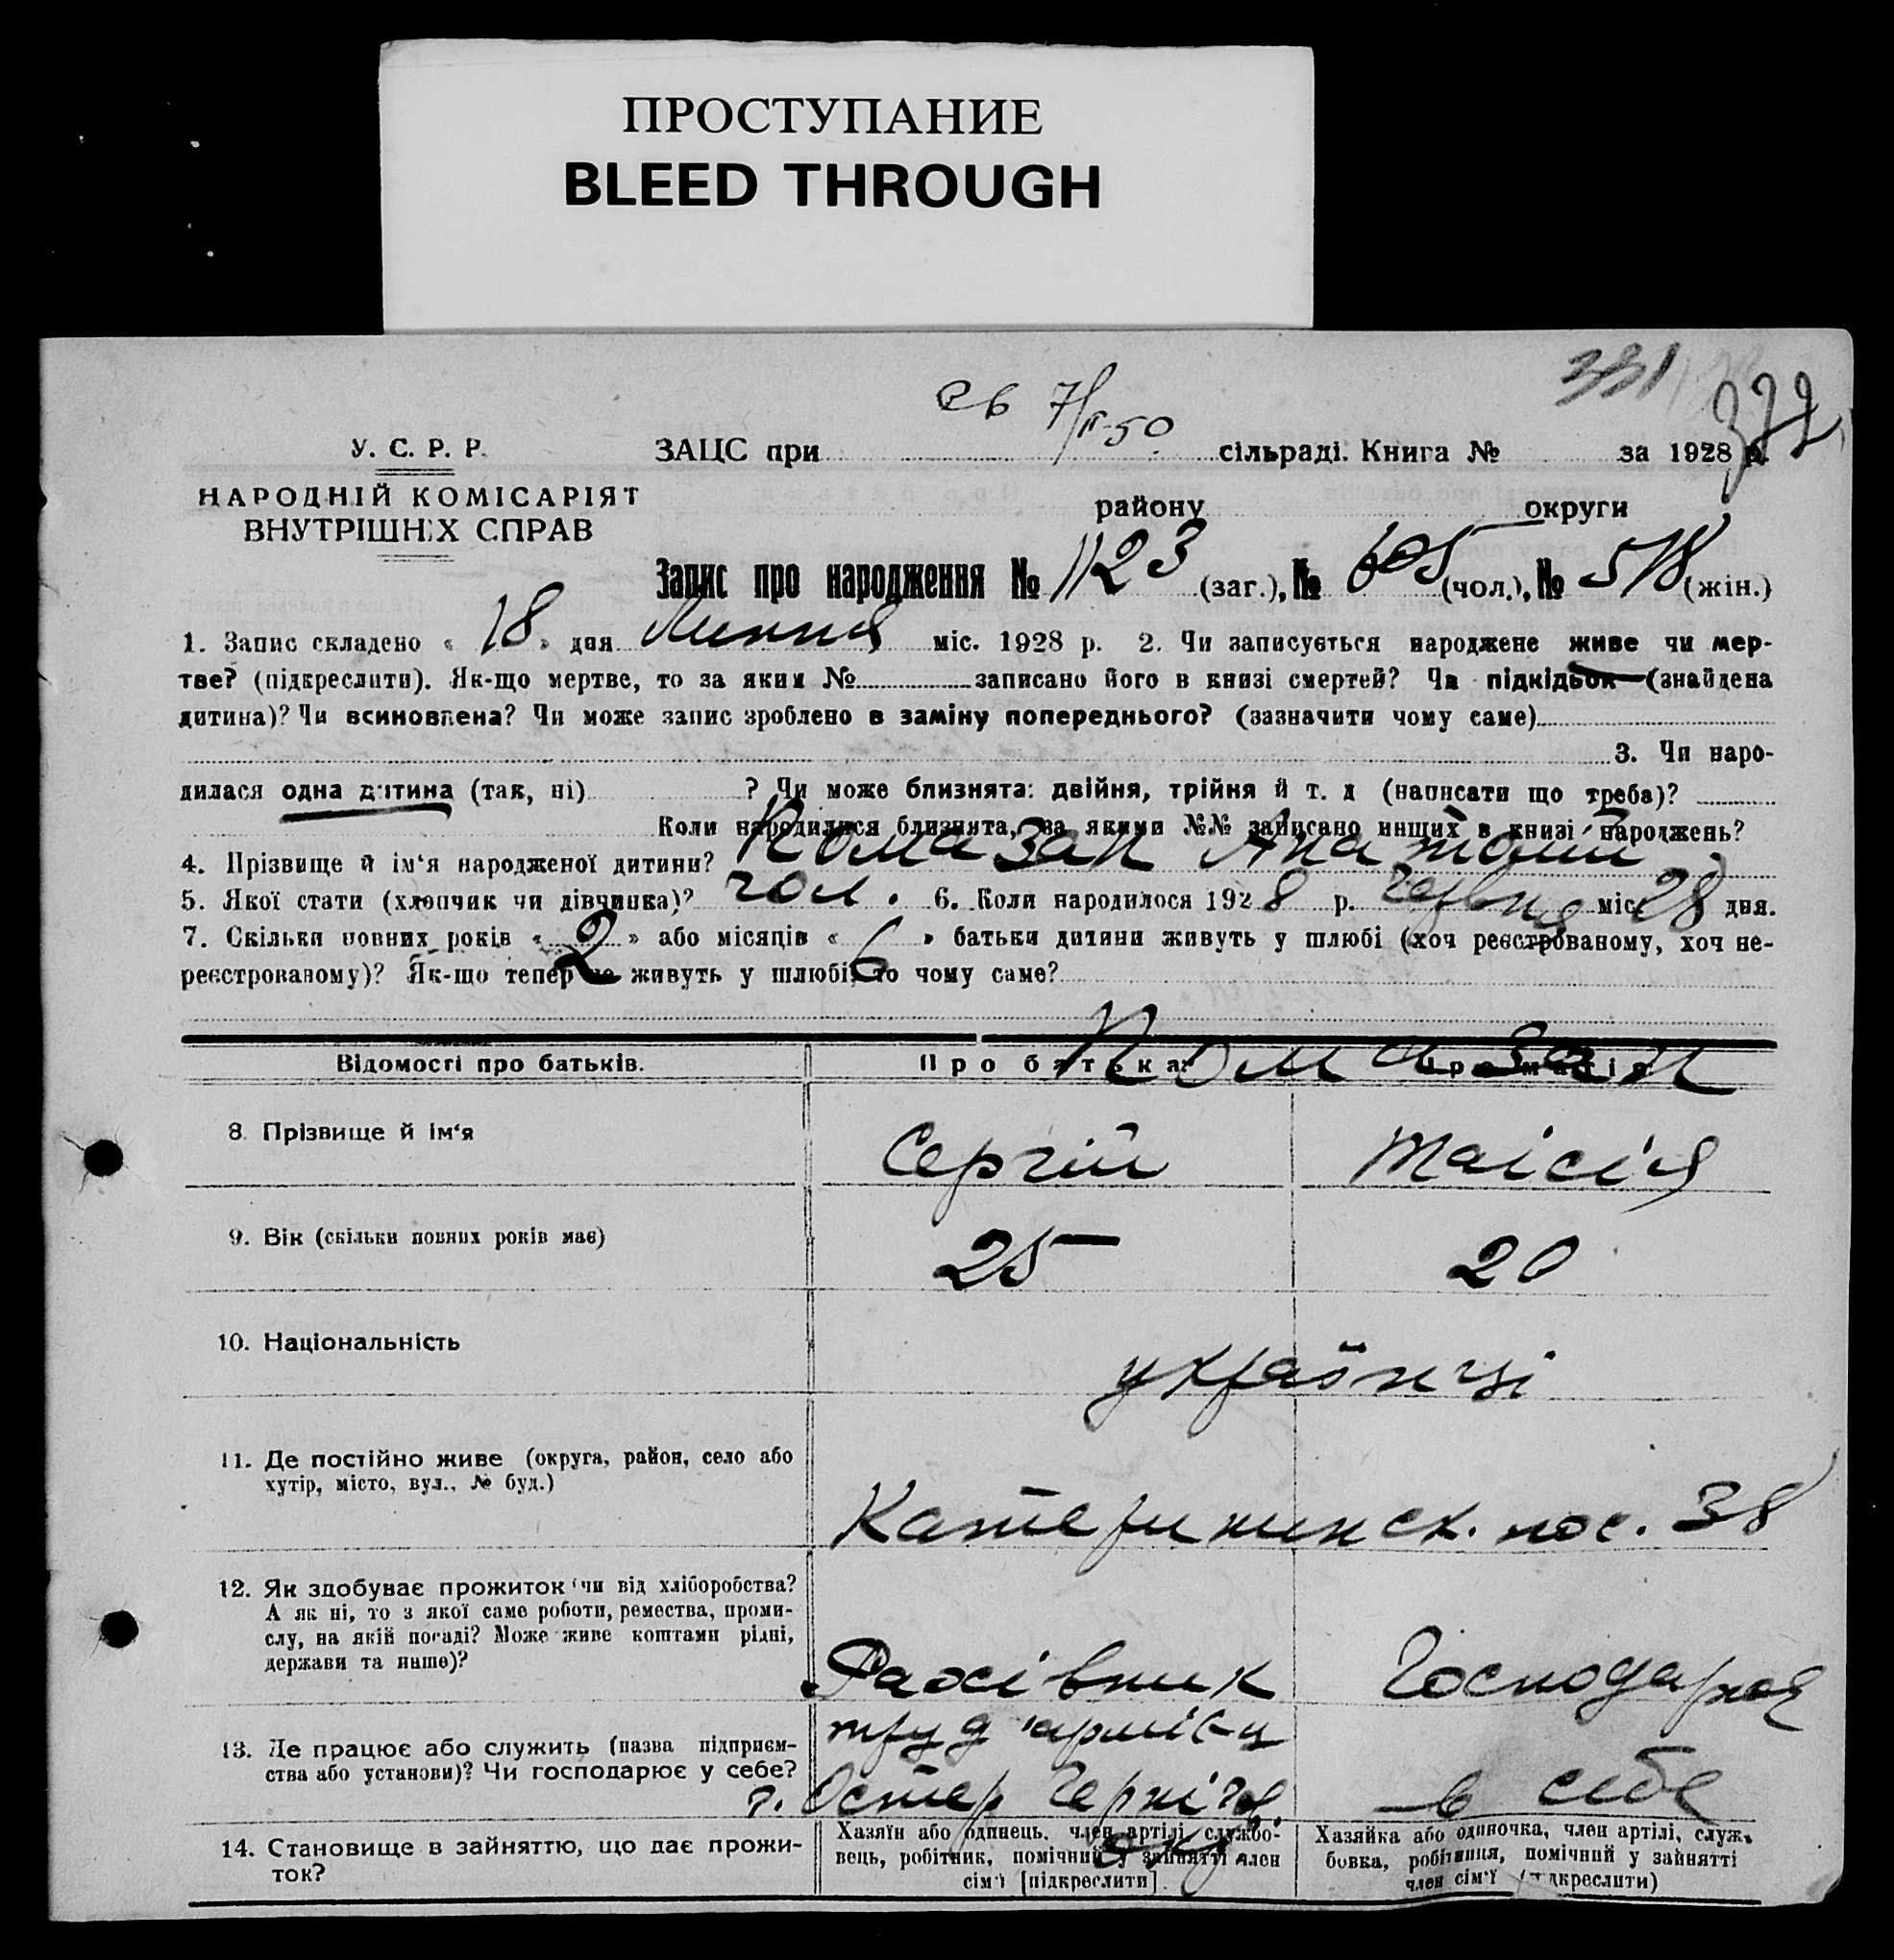 ПРОСТУПАНИЕ
BLEED THROUGH
331
372
св 7/II-50
У. С. Р. Р.
НАРОДНІЙ КОМІСАРІЯТ
ВНУТРІШНІХ СПРАВ
ЗАЦС при сільраді. Книга № за 1928 р.
району округи
Запис про народження № 1123 (заг.), № 605 (чол.), № 518 (жін.)
1. Запис складено « 18 » дня Липня міс. 1928 р. 2. Чи записується народжене живе чи мер-
тве? (підкреслити). Як-що мертве, то за яким № записано його в книзі смертей? Чи підкідьок (знайдена
дитина)? Чи всиновлена? Чи може запис зроблено в заміну попереднього? (зазначити чому саме)
3. Чи наро-
дилася одна дитина (так, ні) ? Чи може близнята: двійня, трійня й т. д (написати що треба)?
Коли народилися близнята, за якими №№ записано инших в книзі народжень?
4. Прізвище й ім'я народженої дитини? Помазан Анатолій
5. Якої стати (хлопчик чи дівчинка)? чол. 6. Коли народилося 1928 р. червня міс. 28 дня.
7. Скільки повних років « 2 » або місяців « 6 » батьки дитини живуть у шлюбі (хоч реєстрованому, хоч не-
реєстрованому)? Як-що тепер не живуть у шлюбі, то чому саме?
Відомості про батьків. Про батька: Про матір
Помазан
8. Прізвище й ім'я Сергій Таісія
9. Вік (скільки повних років має) 25 20
10. Національність українці
11. Де постійно живе (округа, район, село або
хутір, місто, вул., № буд.)
Катерининск. пос. 38
12. Як здобуває прожиток чи від хліборобства?
А як ні, то з якої саме роботи, ремества, проми-
слу, на якій посаді? Може живе коштами рідні,
держави та инше)?
Рахівник Господарює
13. Де працює або служить (назва підприєм-
ства або установи)? Чи господарює у себе?
труд
г. Остер Черніг. в себе
окр.
14. Становище в зайняттю, що дає прожи-
ток?
Хазяїн або одинець, член артілі, службо-
вець, робітник, помічний у зайнятті член
сім'ї [підкреслити].
Хазяйка або одиночка, член артілі, служ-
бовка, робітниця, помічний у зайнятті
член сім'ї (підкреслити)